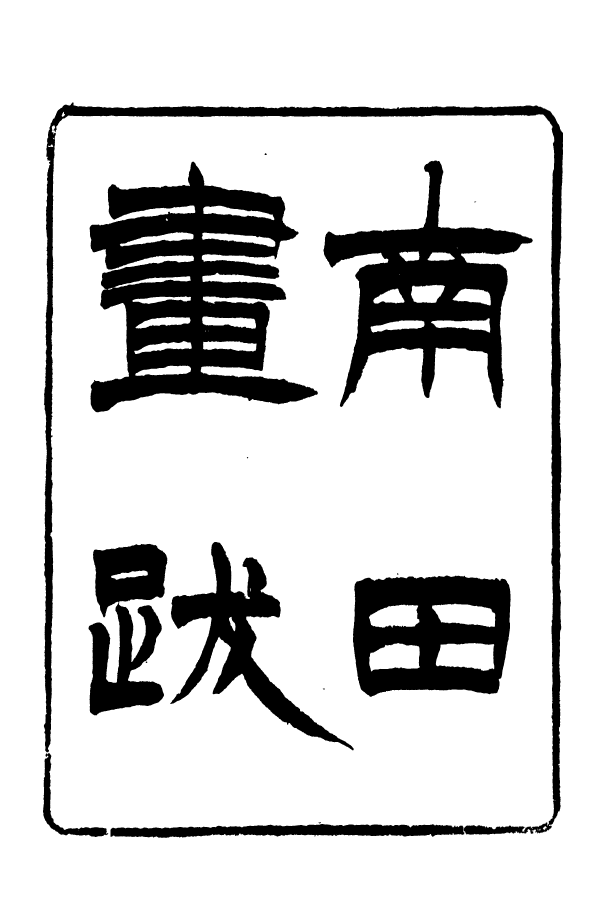 南田
畫跋